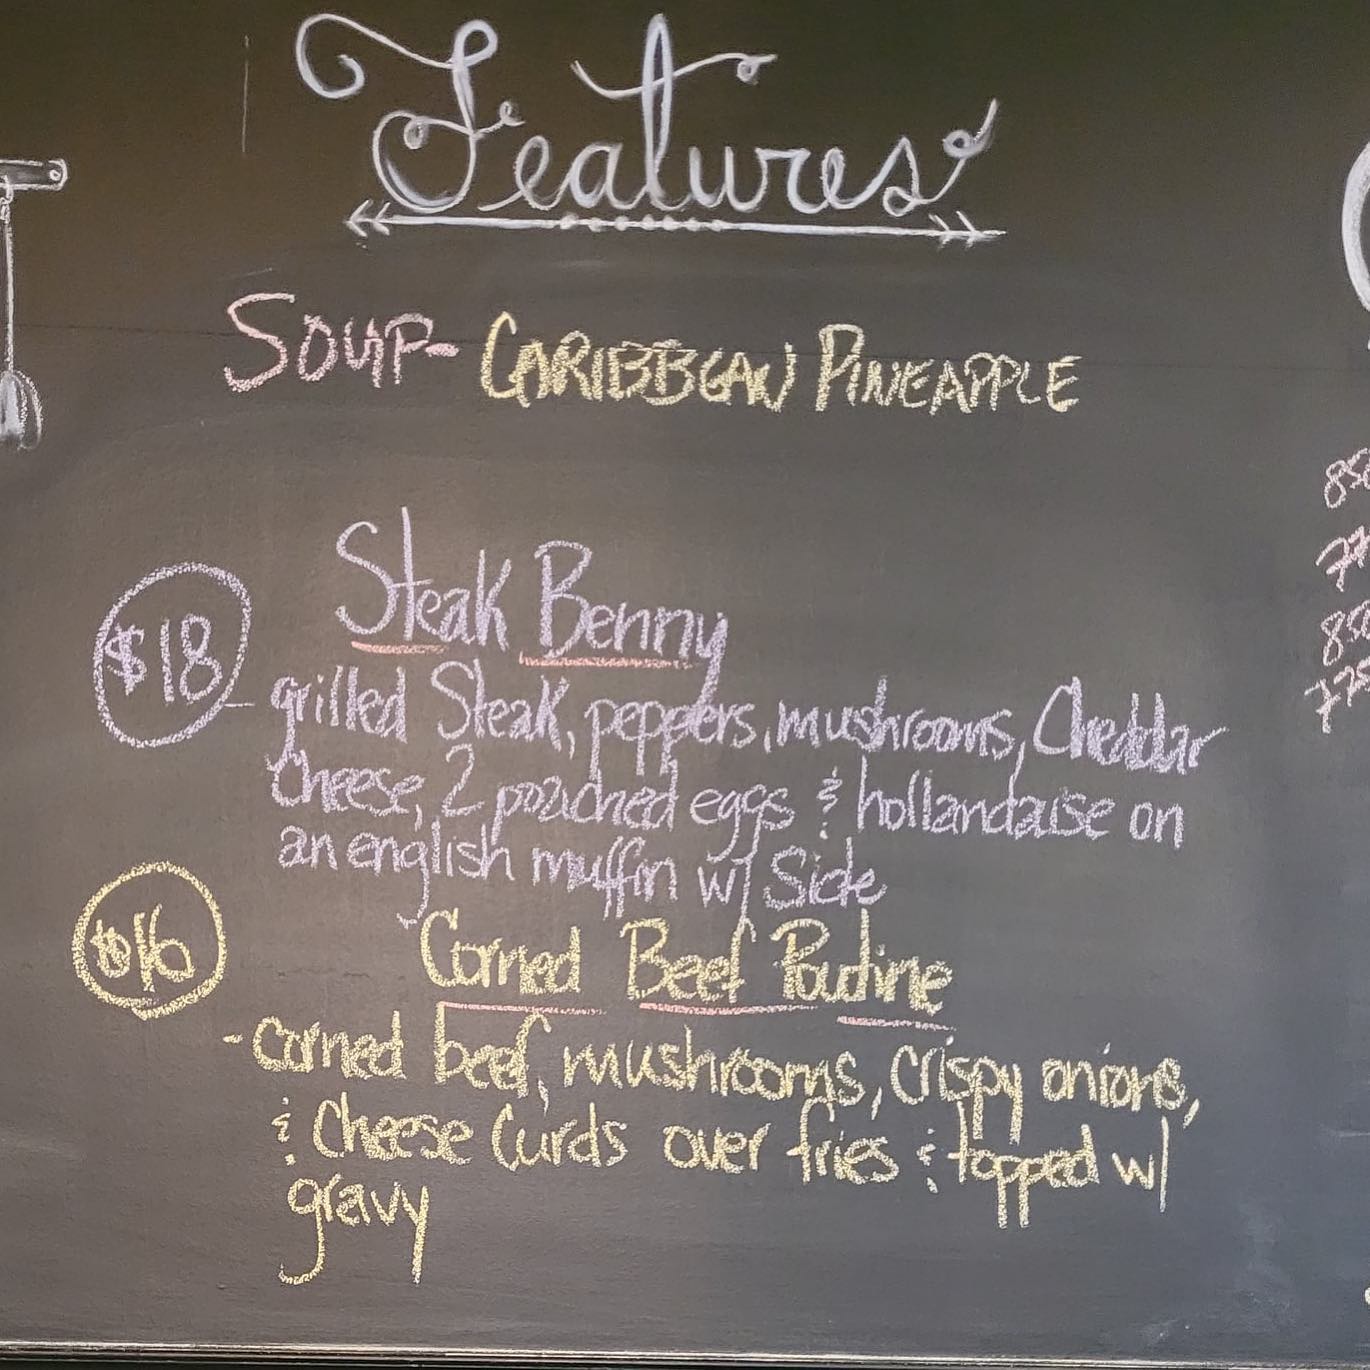 Features
SOUP- CARIBBEAN PINEAPPLE
Steak Benny
$18
- grilled Steak, peppers, mushrooms, Cheddar
Cheese, 2 poached eggs & hollandaise on
an english muffin w/ Side
$16
Corned Beef Poutine
- corned beef, mushrooms, crispy onions,
& Cheese Curds over fries & topped w/
gravy